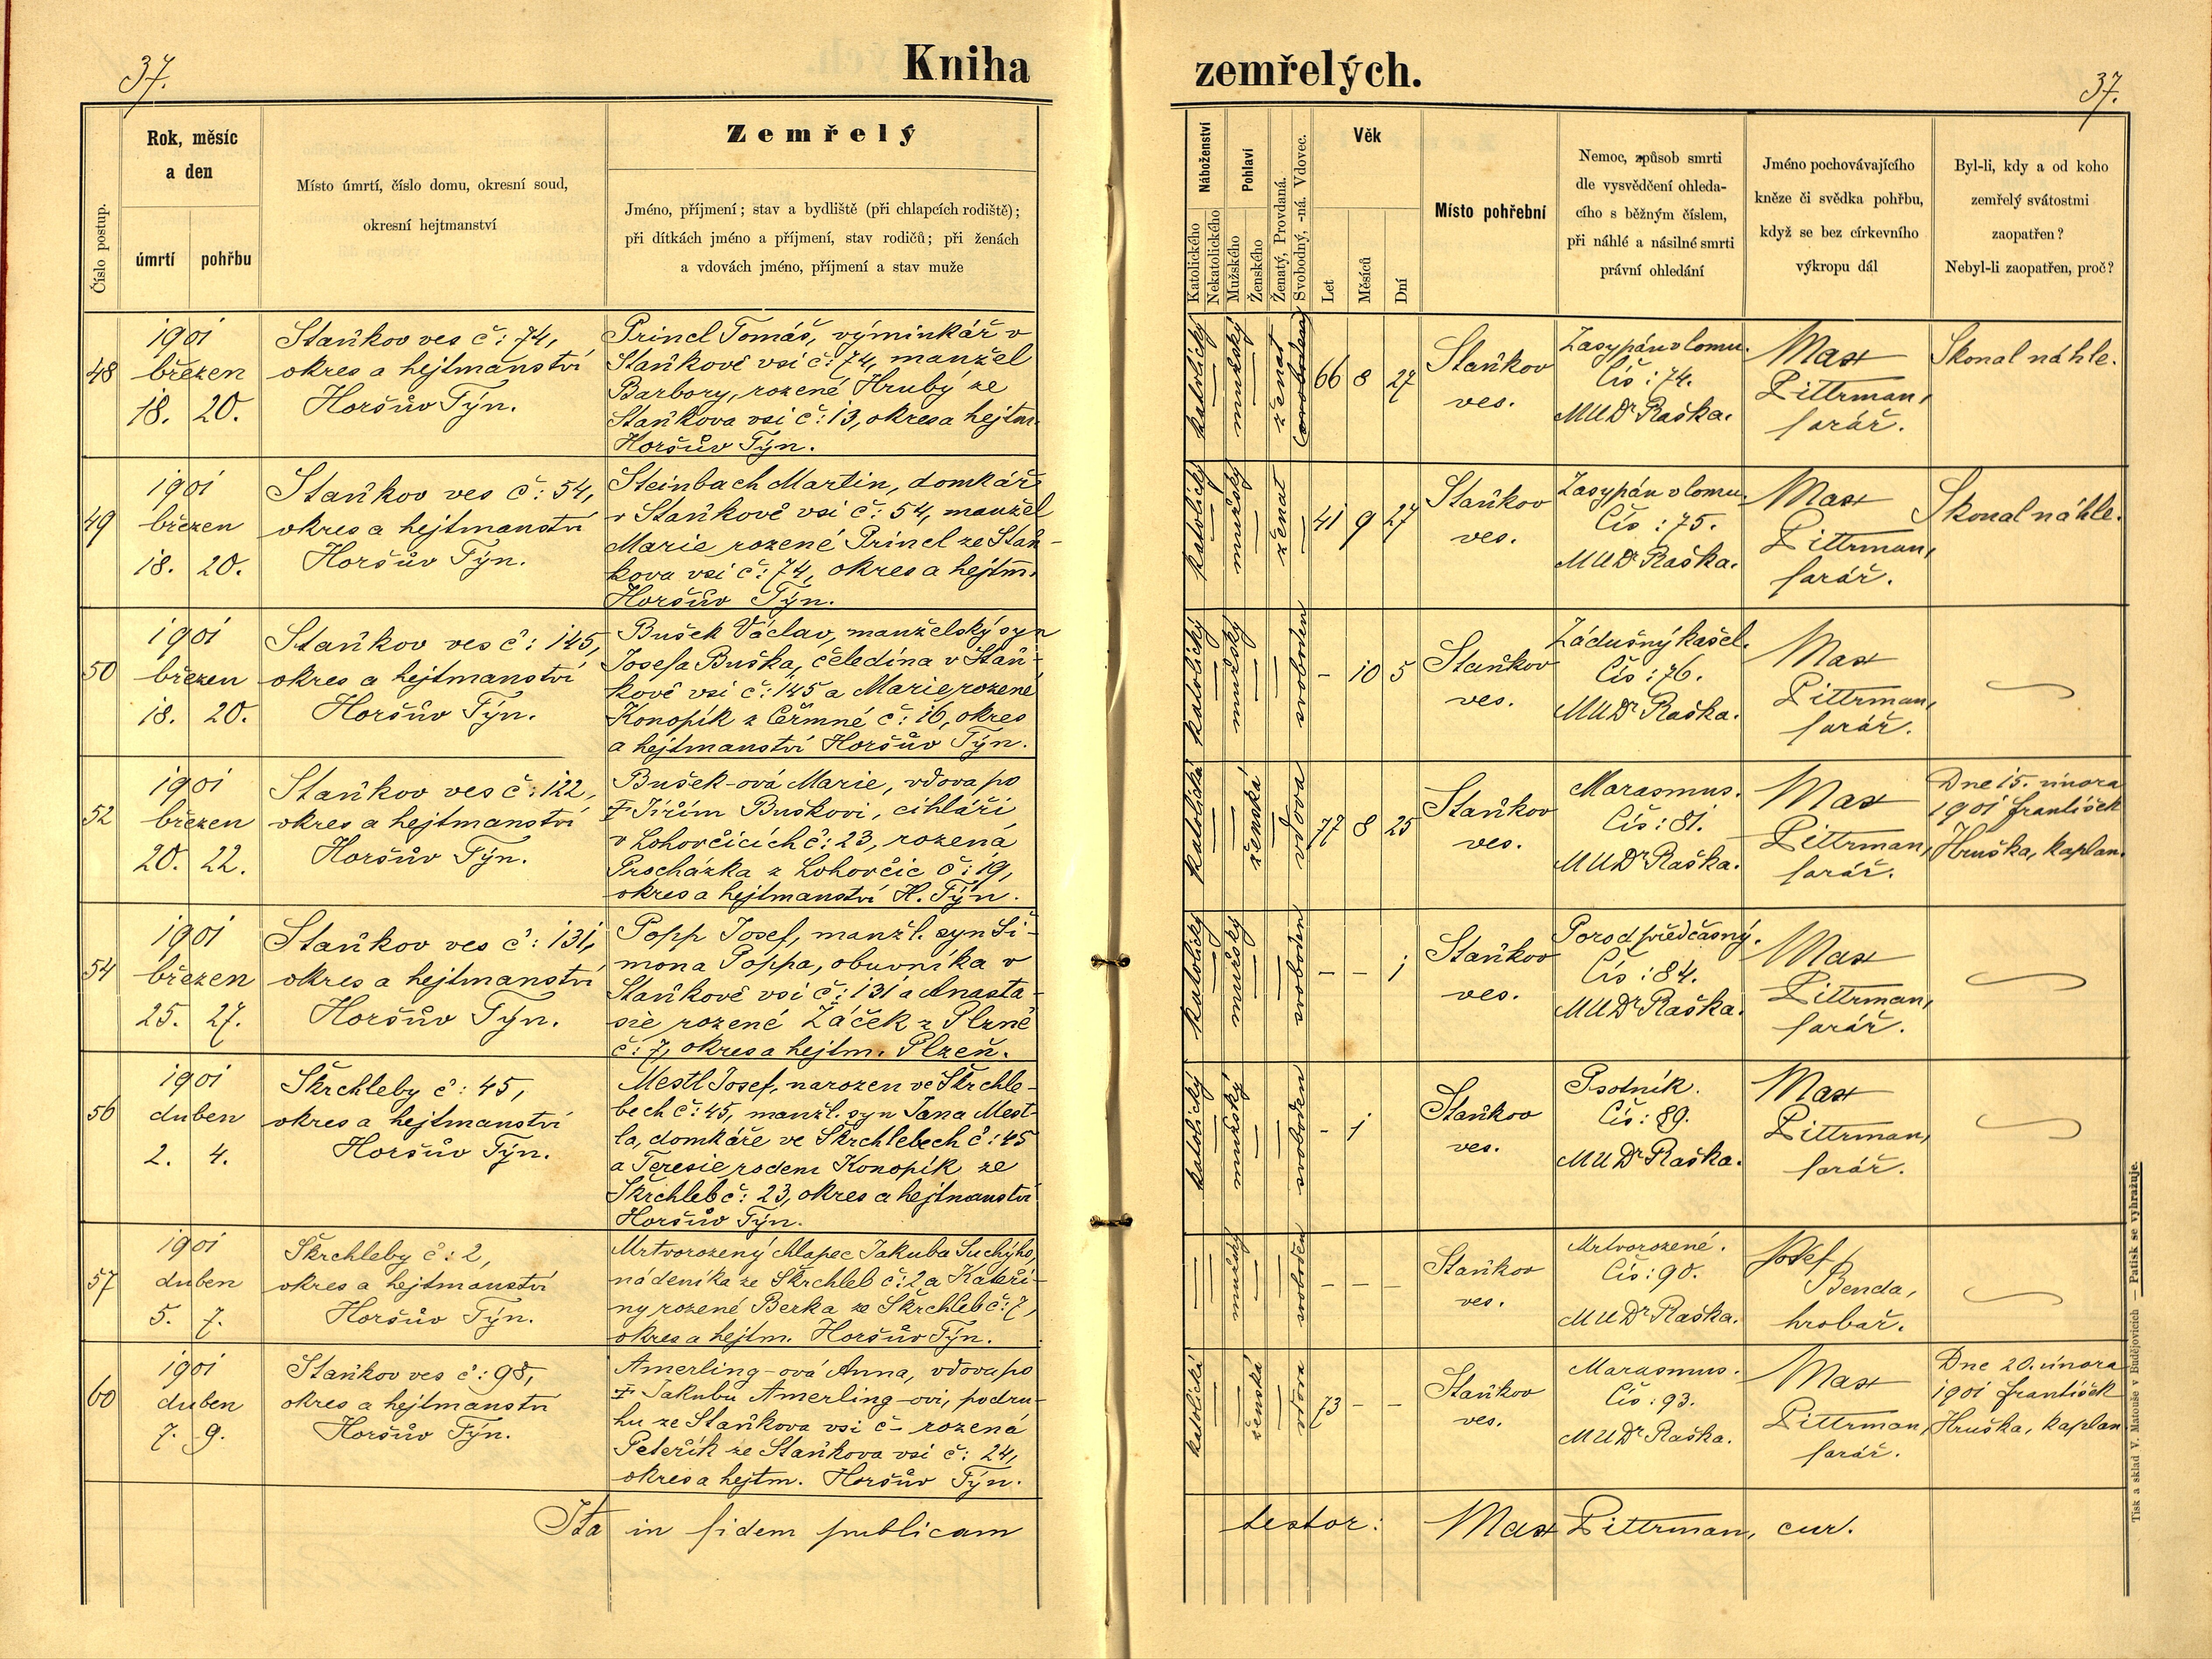 37.
Kniha
zemřelých.
37.
Číslo postup.
Rok, měsíc
a den
úmrtí
pohřbu
Místo úmrtí, číslo domu, okresní soud,
okresní hejtmanství
Zemřelý
Jméno, příjmení; stav a bydliště (při chlapcích rodiště);
při dítkách jméno a příjmení, stav rodičů; při ženách
a vdovách jméno, příjmení a stav muže
Náboženství
Katolického
Nekatolického
Pohlaví
Mužského
Ženského
Ženatý, Provdaná.
Svobodný, -ná. Vdovec.
Věk
Let
Měsíců
Dní
Místo pohřební
Nemoc, způsob smrti
dle vysvědčení ohleda-
cího s běžným číslem,
při náhlé a násilné smrti
právní ohledání
Jméno pochovávajícího
kněze či svědka pohřbu,
když se bez církevního
výkropu dál
Byl-li, kdy a od koho
zemřelý svátostmi
zaopatřen?
Nebyl-li zaopatřen, proč?
48
1901
březen
18. 20.
Staňkov ves č: 74,
okres a hejtmanství
Horšův Týn.
Princl Tomáš, výminkář v
Staňkově vsi č: 74, manžel
Barbory, rozené Hrubý ze
Staňkova vsi č: 13, okres a hejtm.
Horšův Týn.
katolický
mužský
ženat
66 8 27
Staňkov
ves.
Zasypán v lomu.
Čís: 74.
MUDr Raška.
Max
Pittrman,
farář.
Skonal náhle.
49
1901
březen
18. 20.
Staňkov ves č: 54,
okres a hejtmanství
Horšův Týn.
Steinbach Martin, domkář
v Staňkově vsi č: 54, manžel
Marie rozené Princl ze Staň-
kova vsi č: 74, okres a hejtm.
Horšův Týn.
katolický
mužský
ženat
41 9 27
Staňkov
ves.
Zasypán v lomu.
Čís: 75.
MUDr Raška.
Max
Pittrman,
farář.
Skonal náhle.
50
1901
březen
18. 20.
Staňkov ves č: 145,
okres a hejtmanství
Horšův Týn.
Bušek Václav, manželský syn
Josefa Buška, čeledína v Staň-
kově vsi č: 145 a Marie rozené
Konopík z Čermné č: 16, okres
a hejtmanství Horšův Týn.
katolický
mužský
svoboden
- 10 5
Staňkov
ves.
Zádušný kašel.
Čís: 76.
MUDr Raška.
Max
Pittrman,
farář.
52
1901
březen
20. 22.
Staňkov ves č: 122,
okres a hejtmanství
Horšův Týn.
Bušek-ová Marie, vdova po
† Jiřím Buškovi, cihláři
v Lohovčicích č: 23, rozená
Procházka z Lohovčic č: 19,
okres a hejtmanství H. Týn.
katolická
ženská
vdova
77 8 25
Staňkov
ves.
Marasmus.
Čís: 81.
MUDr Raška.
Max
Pittrman,
farář.
Dne 15. února
1901 František
Hruška, kaplan.
54
1901
březen
25. 27.
Staňkov ves č: 131,
okres a hejtmanství
Horšův Týn.
Popp Josef, manžl. syn Ši-
mona Poppa, obuvníka v
Staňkově vsi č: 131 a Anasta-
sie rozené Žáček z Plzně
č: 7, okres a hejtm. Plzeň.
katolický
mužský
svoboden
- - 1
Staňkov
ves.
Porod předčasný.
Čís: 84.
MUDr Raška.
Max
Pittrman,
farář.
56
1901
duben
2. 4.
Škrchleby č: 45,
okres a hejtmanství
Horšův Týn.
Mestl Josef, narozen ve Škrchle-
bech č: 45, manžl. syn Jana Mest-
la, domkáře ve Škrchlebech č: 45
a Teresie rodem Konopík ze
Škrchleb č: 23, okres a hejtmanství
Horšův Týn.
katolický
mužský
svoboden
- 1
Staňkov
ves.
Psotník.
Čís: 89.
MUDr Raška.
Max
Pittrman,
farář.
57
1901
duben
5. 7.
Škrchleby č: 2,
okres a hejtmanství
Horšův Týn.
Mrtvorozený chlapec Jakuba Suchýho,
nádeníka ze Škrchleb č: 2 a Kateři-
ny rozené Berka ze Škrchleb č: 7,
okres a hejtm. Horšův Týn.
mužský
svoboden
- - -
Staňkov
ves.
Mrtvorozené.
Čís: 90.
MUDr Raška.
Josef
Benda,
hrobař.
60
1901
duben
7. 9.
Staňkov ves č: 98,
okres a hejtmanství
Horšův Týn.
Amerling-ová Anna, vdova po
† Jakubu Amerling-ovi, podru-
hu ze Staňkova vsi č - rozená
Peteřík ze Staňkova vsi č: 24,
okres a hejtm. Horšův Týn.
katolická
ženská
vdova
73 - -
Staňkov
ves.
Marasmus.
Čís: 93.
MUDr Raška.
Max
Pittrman,
farář.
Dne 20. února
1901 František
Hruška, kaplan
Ita in fidem publicam
testor: Max Pittrman, cur.
Tisk a sklad V. Matouše v Budějovicích — Patisk se vyhražuje.